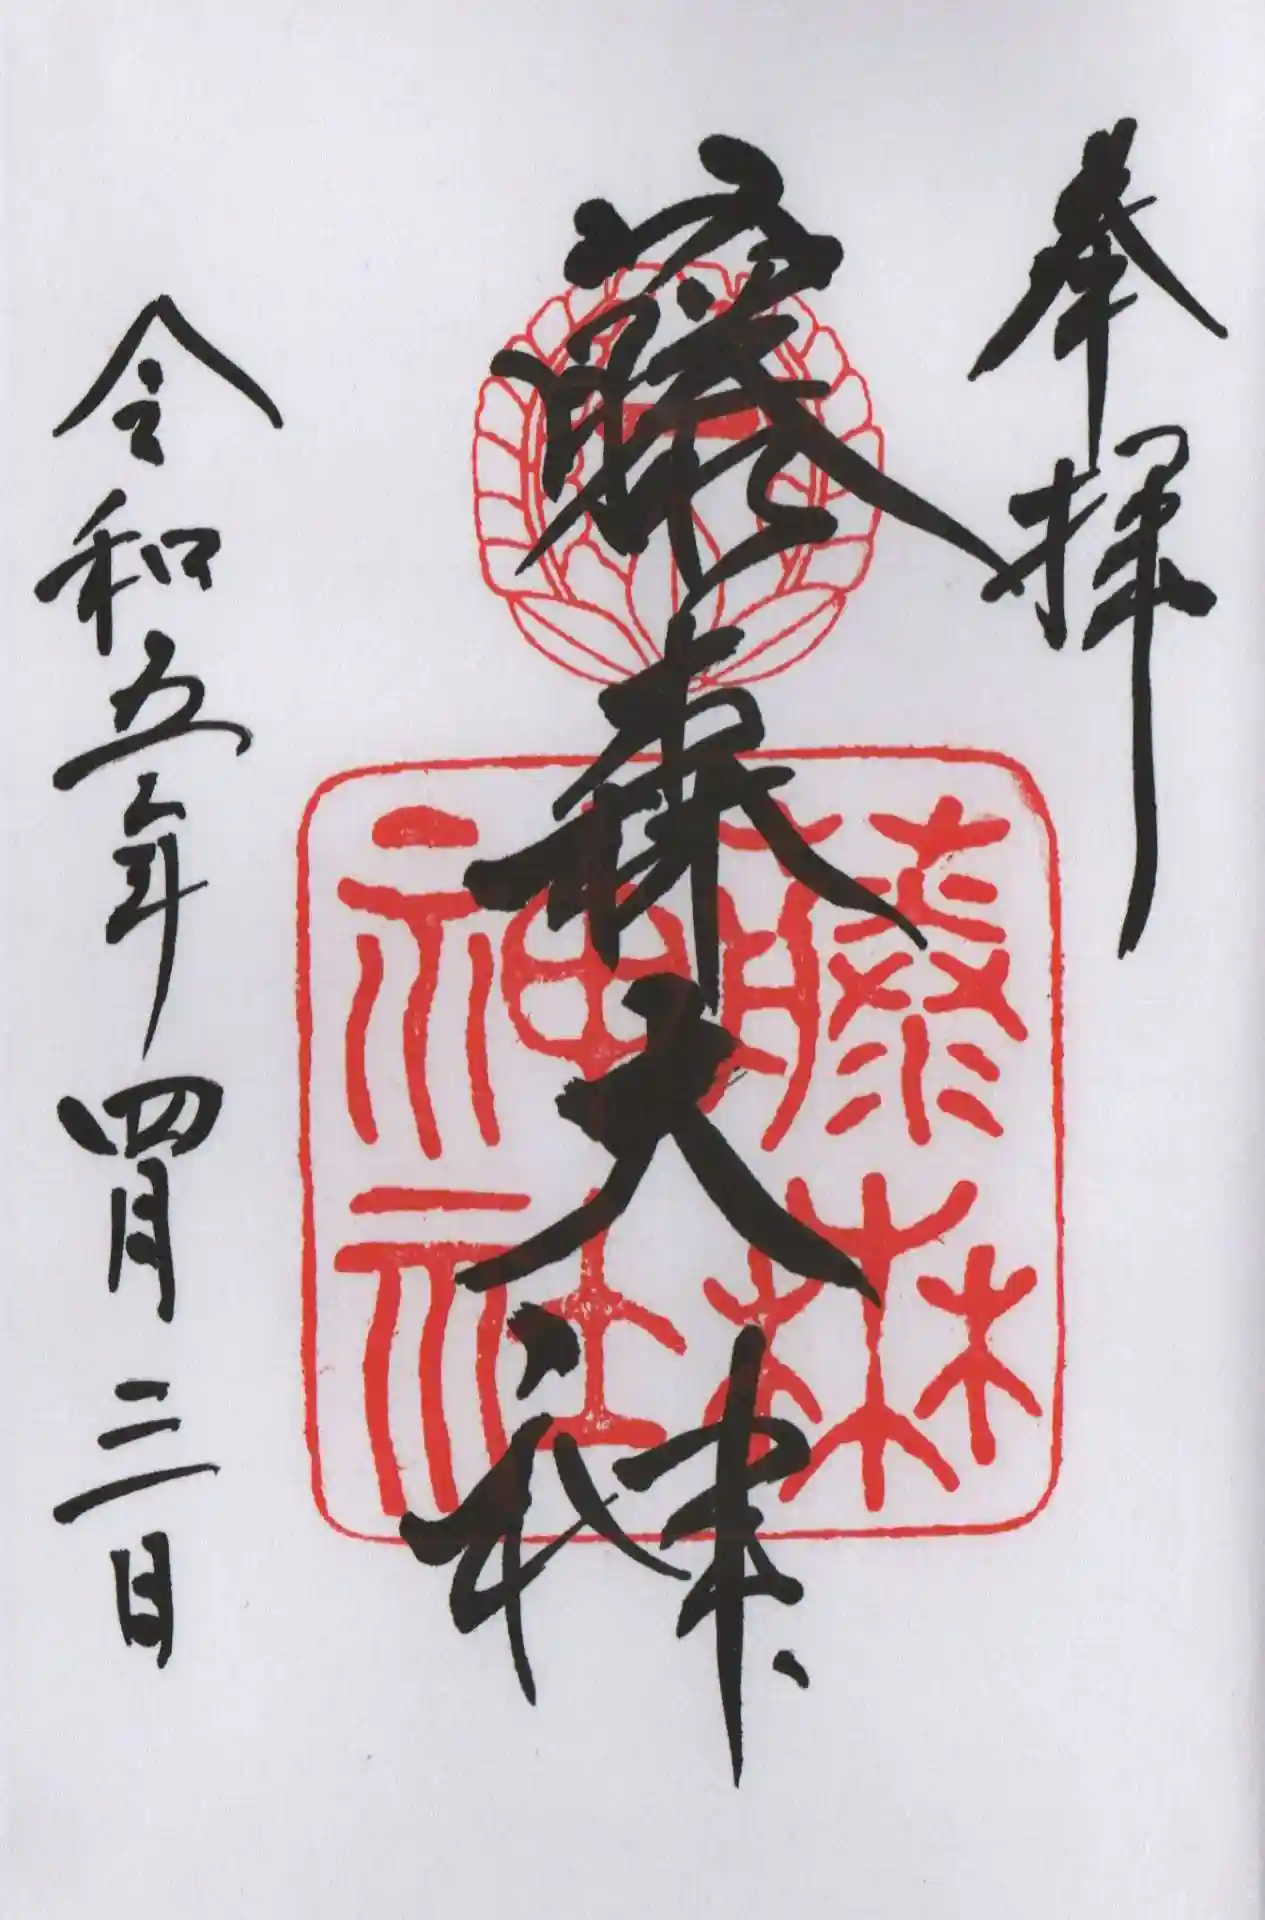 奉拝
藤森大神
藤森
神社
令和五年四月三日